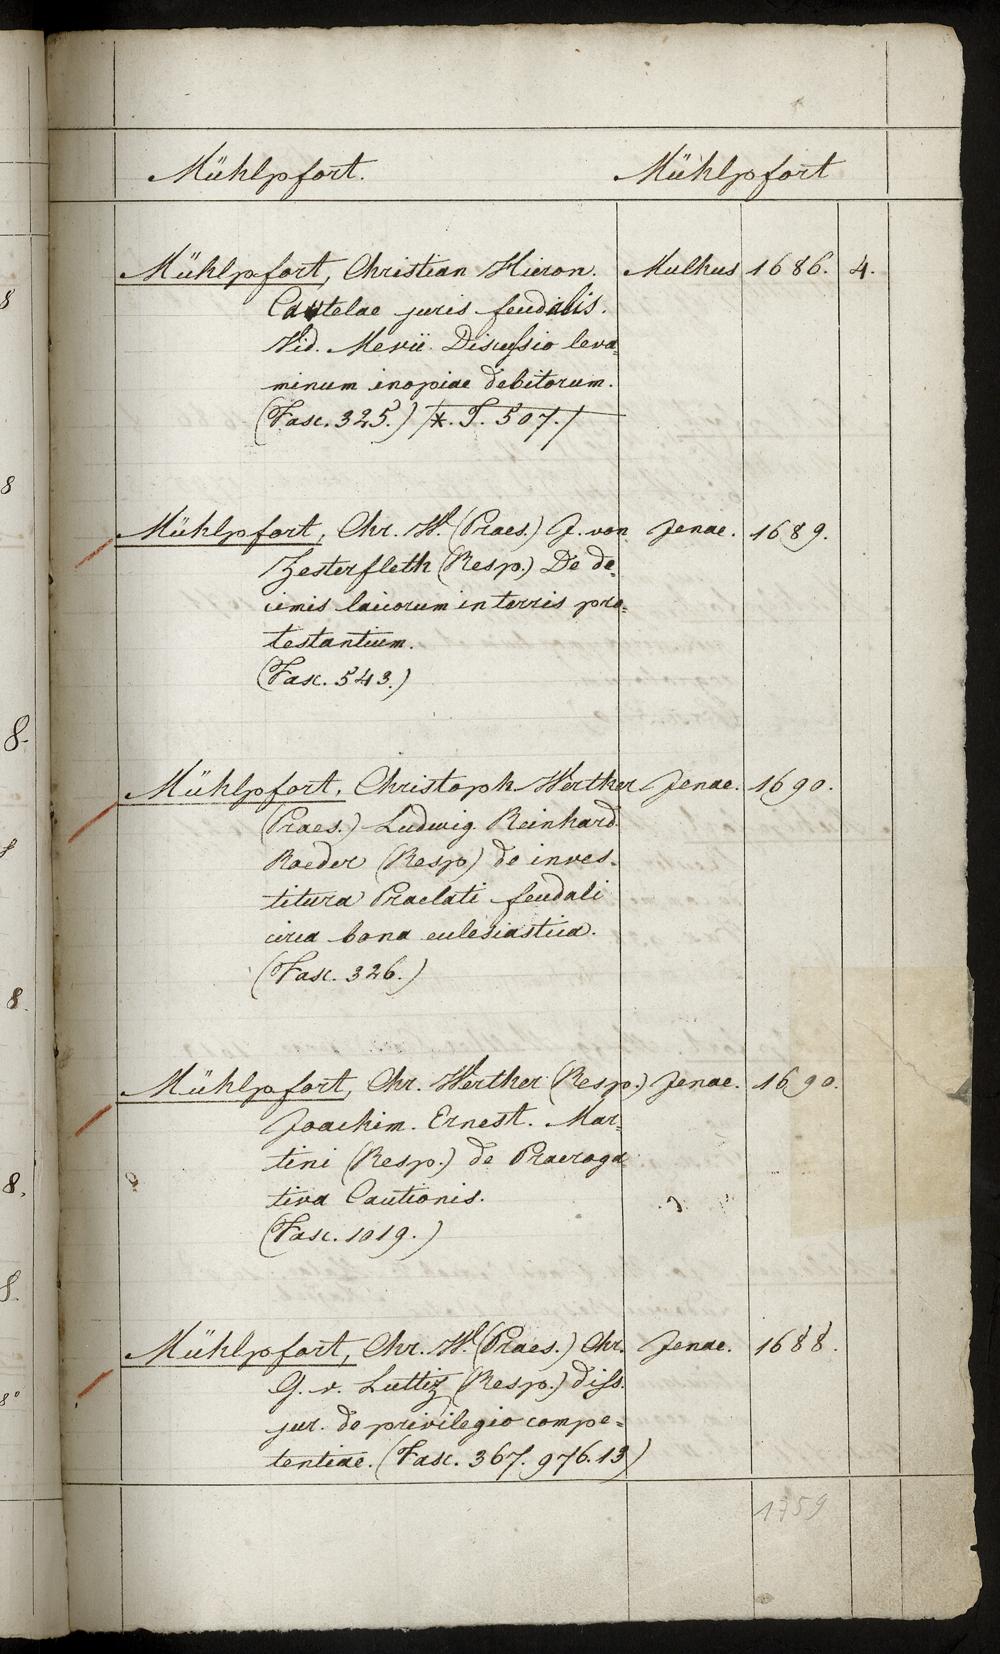 Mühlpfort. Mühlpfort
Mühlpfort, Christian Hieron. Mulhus 1686. 4.
Cautelae juris feudalis.
Vid. Mevii Discussio leva-
minum inopiae debitorum.
(Fasc. 325.) /*. T. 507./
Mühlpfort, Chr. W. (Praes.) J. von Jenae. 1689.
Zesterfleth (Resp.) De de-
cimis laicorum in terris pro-
testantium.
(Fasc. 543.)
Mühlpfort, Christoph Werther Jenae. 1690.
(Praes.) Ludwig Reinhard
Raeder (Resp) de inves-
titura Praelati feudali
circa bona ecclesiastica.
(Fasc. 326.)
Mühlpfort, Chr. Werther (Resp.) Jenae. 1690.
Joachim. Ernest. Mar-
tini (Resp.) de Praeroga
tiva Cautionis.
(Fasc. 1019.)
Mühlpfort, Chr. W. (Praes.) Chr. Jenae. 1688.
G. v. Luttiz (Resp.) diss.
jur. de privilegio compe-
tentiae. (Fasc. 367. 976. 13)
1759
8
8
8.
8
8.
8.
8°